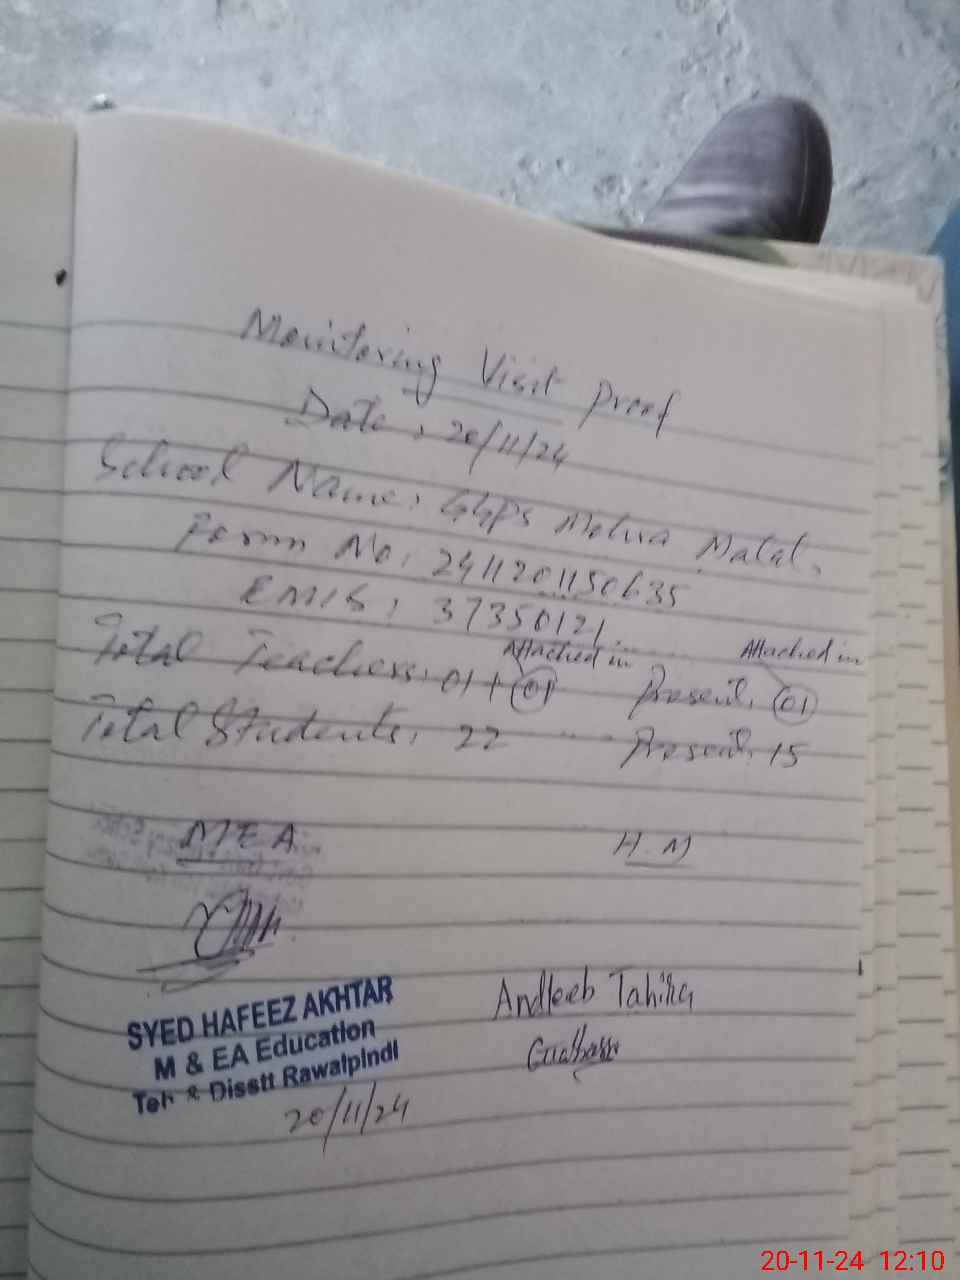 Monitoring Visit Proof
Date: 20/11/24
School Name: GGPS Mohra Matal.
Form No: 2411201150635
EMIS: 37350121.
Attached in Attached in
Total Teachers: 01+01 Present: 01
Total Students: 22 Present: 15
MEA H.M
SYED HAFEEZ AKHTAR
M & EA Education
Teh & Disstt Rawalpindi
20/11/24
Andleeb Tahira
20-11-24 12:10